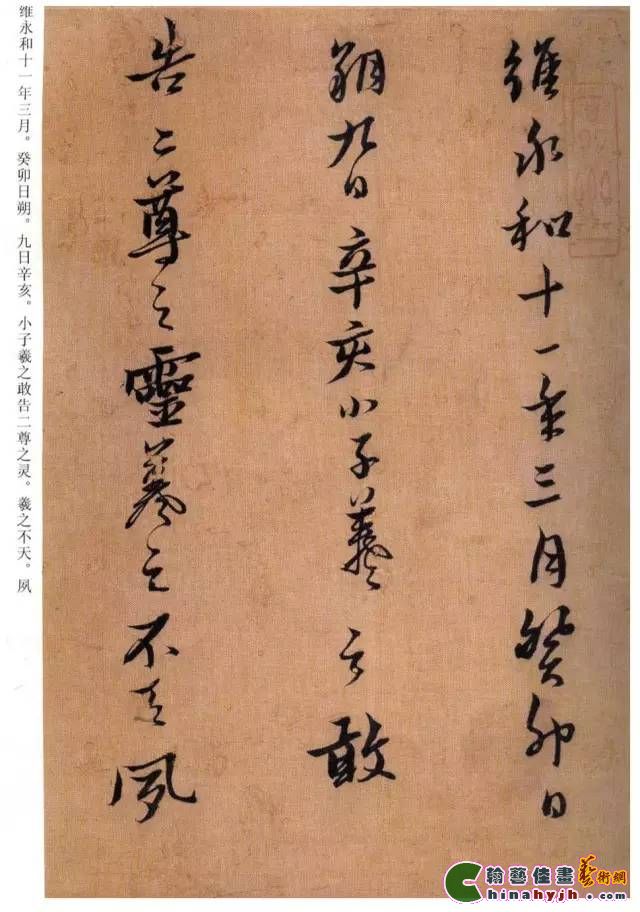 維永和十一年三月癸卯日
朔九日辛亥小子羲之敢
告二尊之靈羲之不天夙
维永和十一年三月。癸卯日朔。九日辛亥。小子羲之敢告二尊之灵。羲之不天。夙
翰藝佳畫藝術網
Chinahyjh.com